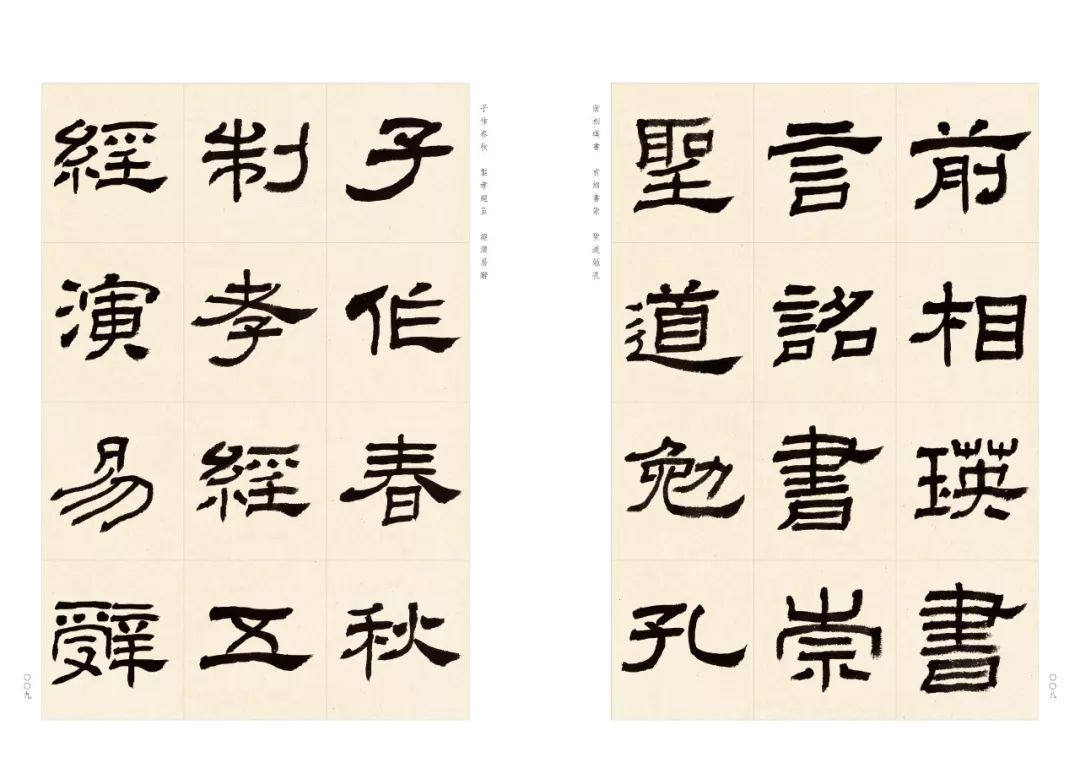 前相瑛書
言詔書崇
聖道勉孔
前相瑛書 言詔書崇 聖道勉孔
〇〇八
子作春秋
制孝經五
經演易辭
子作春秋 製孝經五 經演易辭
〇〇九